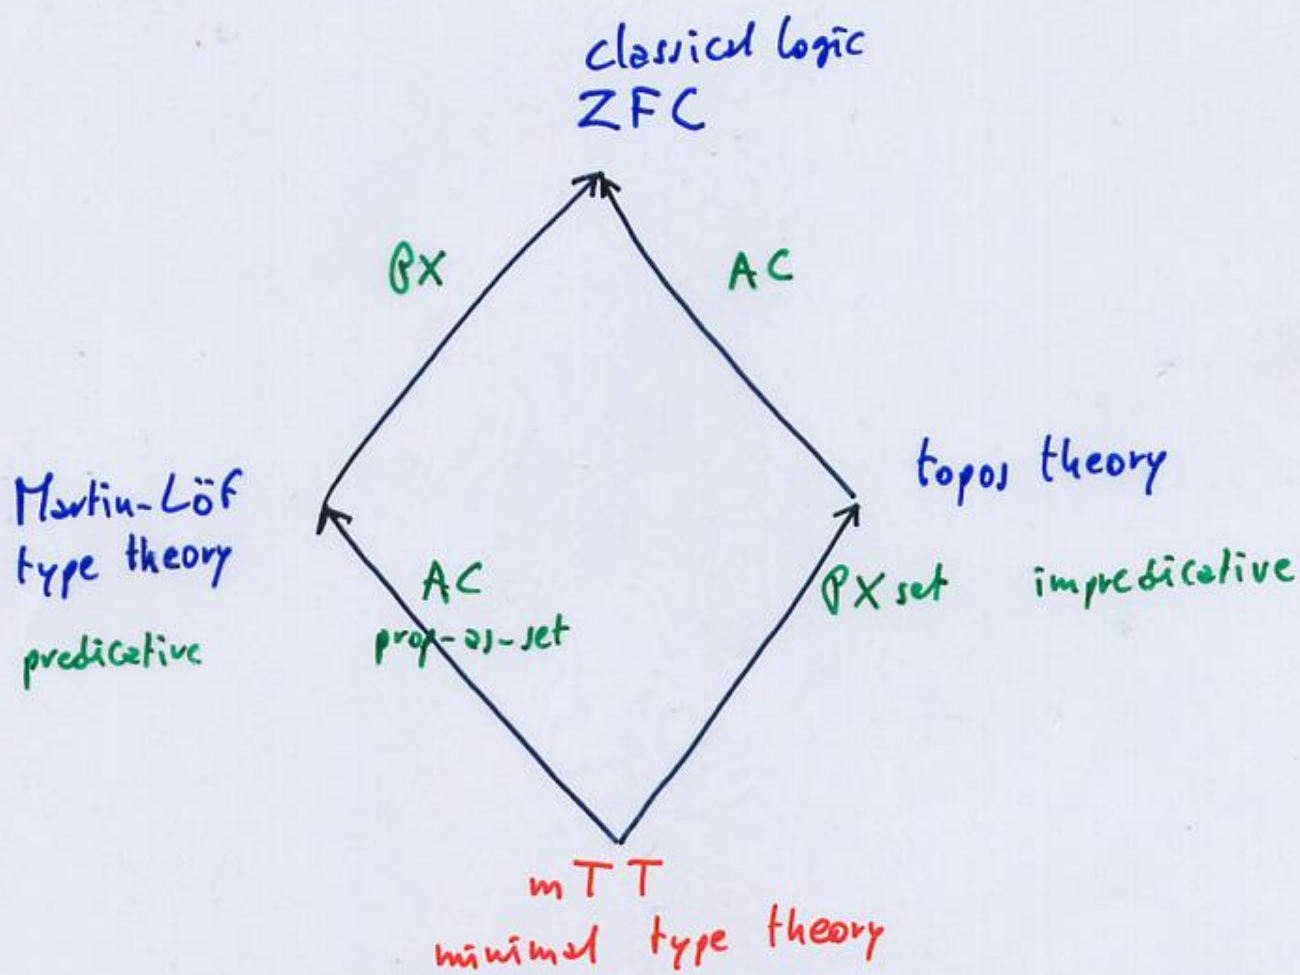 classical logic
ZFC
PX
AC
Martin-Löf
type theory
predicative
topos theory
AC
prop-as-set
PX set
impredicative
mTT
minimal type theory